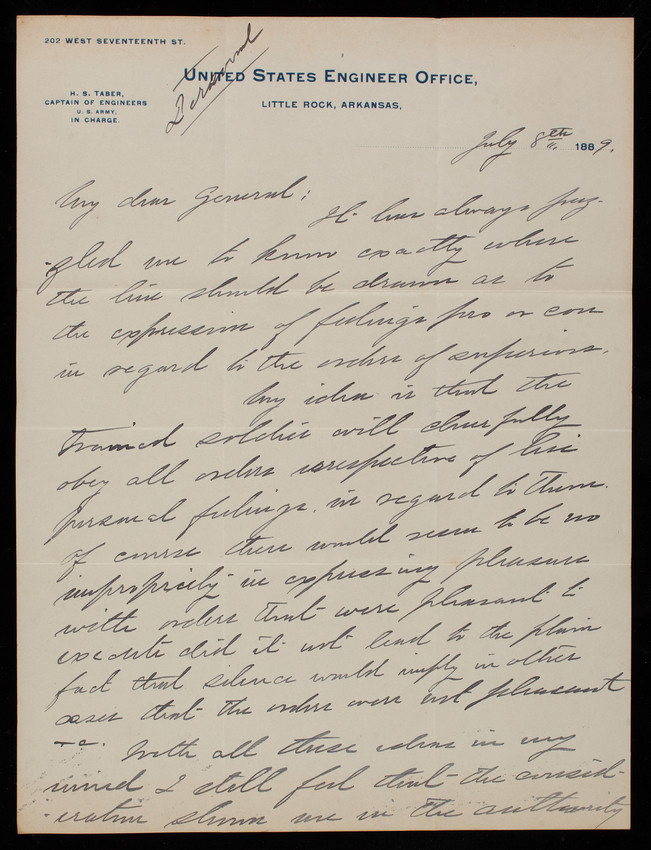 202 WEST SEVENTEENTH ST.
Personal
UNITED STATES ENGINEER OFFICE,
LITTLE ROCK, ARKANSAS,
H. S. TABER,
CAPTAIN OF ENGINEERS
U. S. ARMY,
IN CHARGE.
July 8th 1889.
My dear General:
It has always puz-
-zled me to know exactly where
the line should be drawn as to
the expression of feelings pro or con
in regard to the orders of superiors.
My idea is that the
trained soldier will cheerfully
obey all orders irrespective of his
personal feelings in regard to them.
Of course there would seem to be no
impropriety in expressing pleasure
with orders that were pleasant to
execute did it not lead to the plain
fact that silence would imply in other
cases that the orders were not pleasant
With all these ideas in my
mind I still feel that the consid-
-eration shown me in the authority